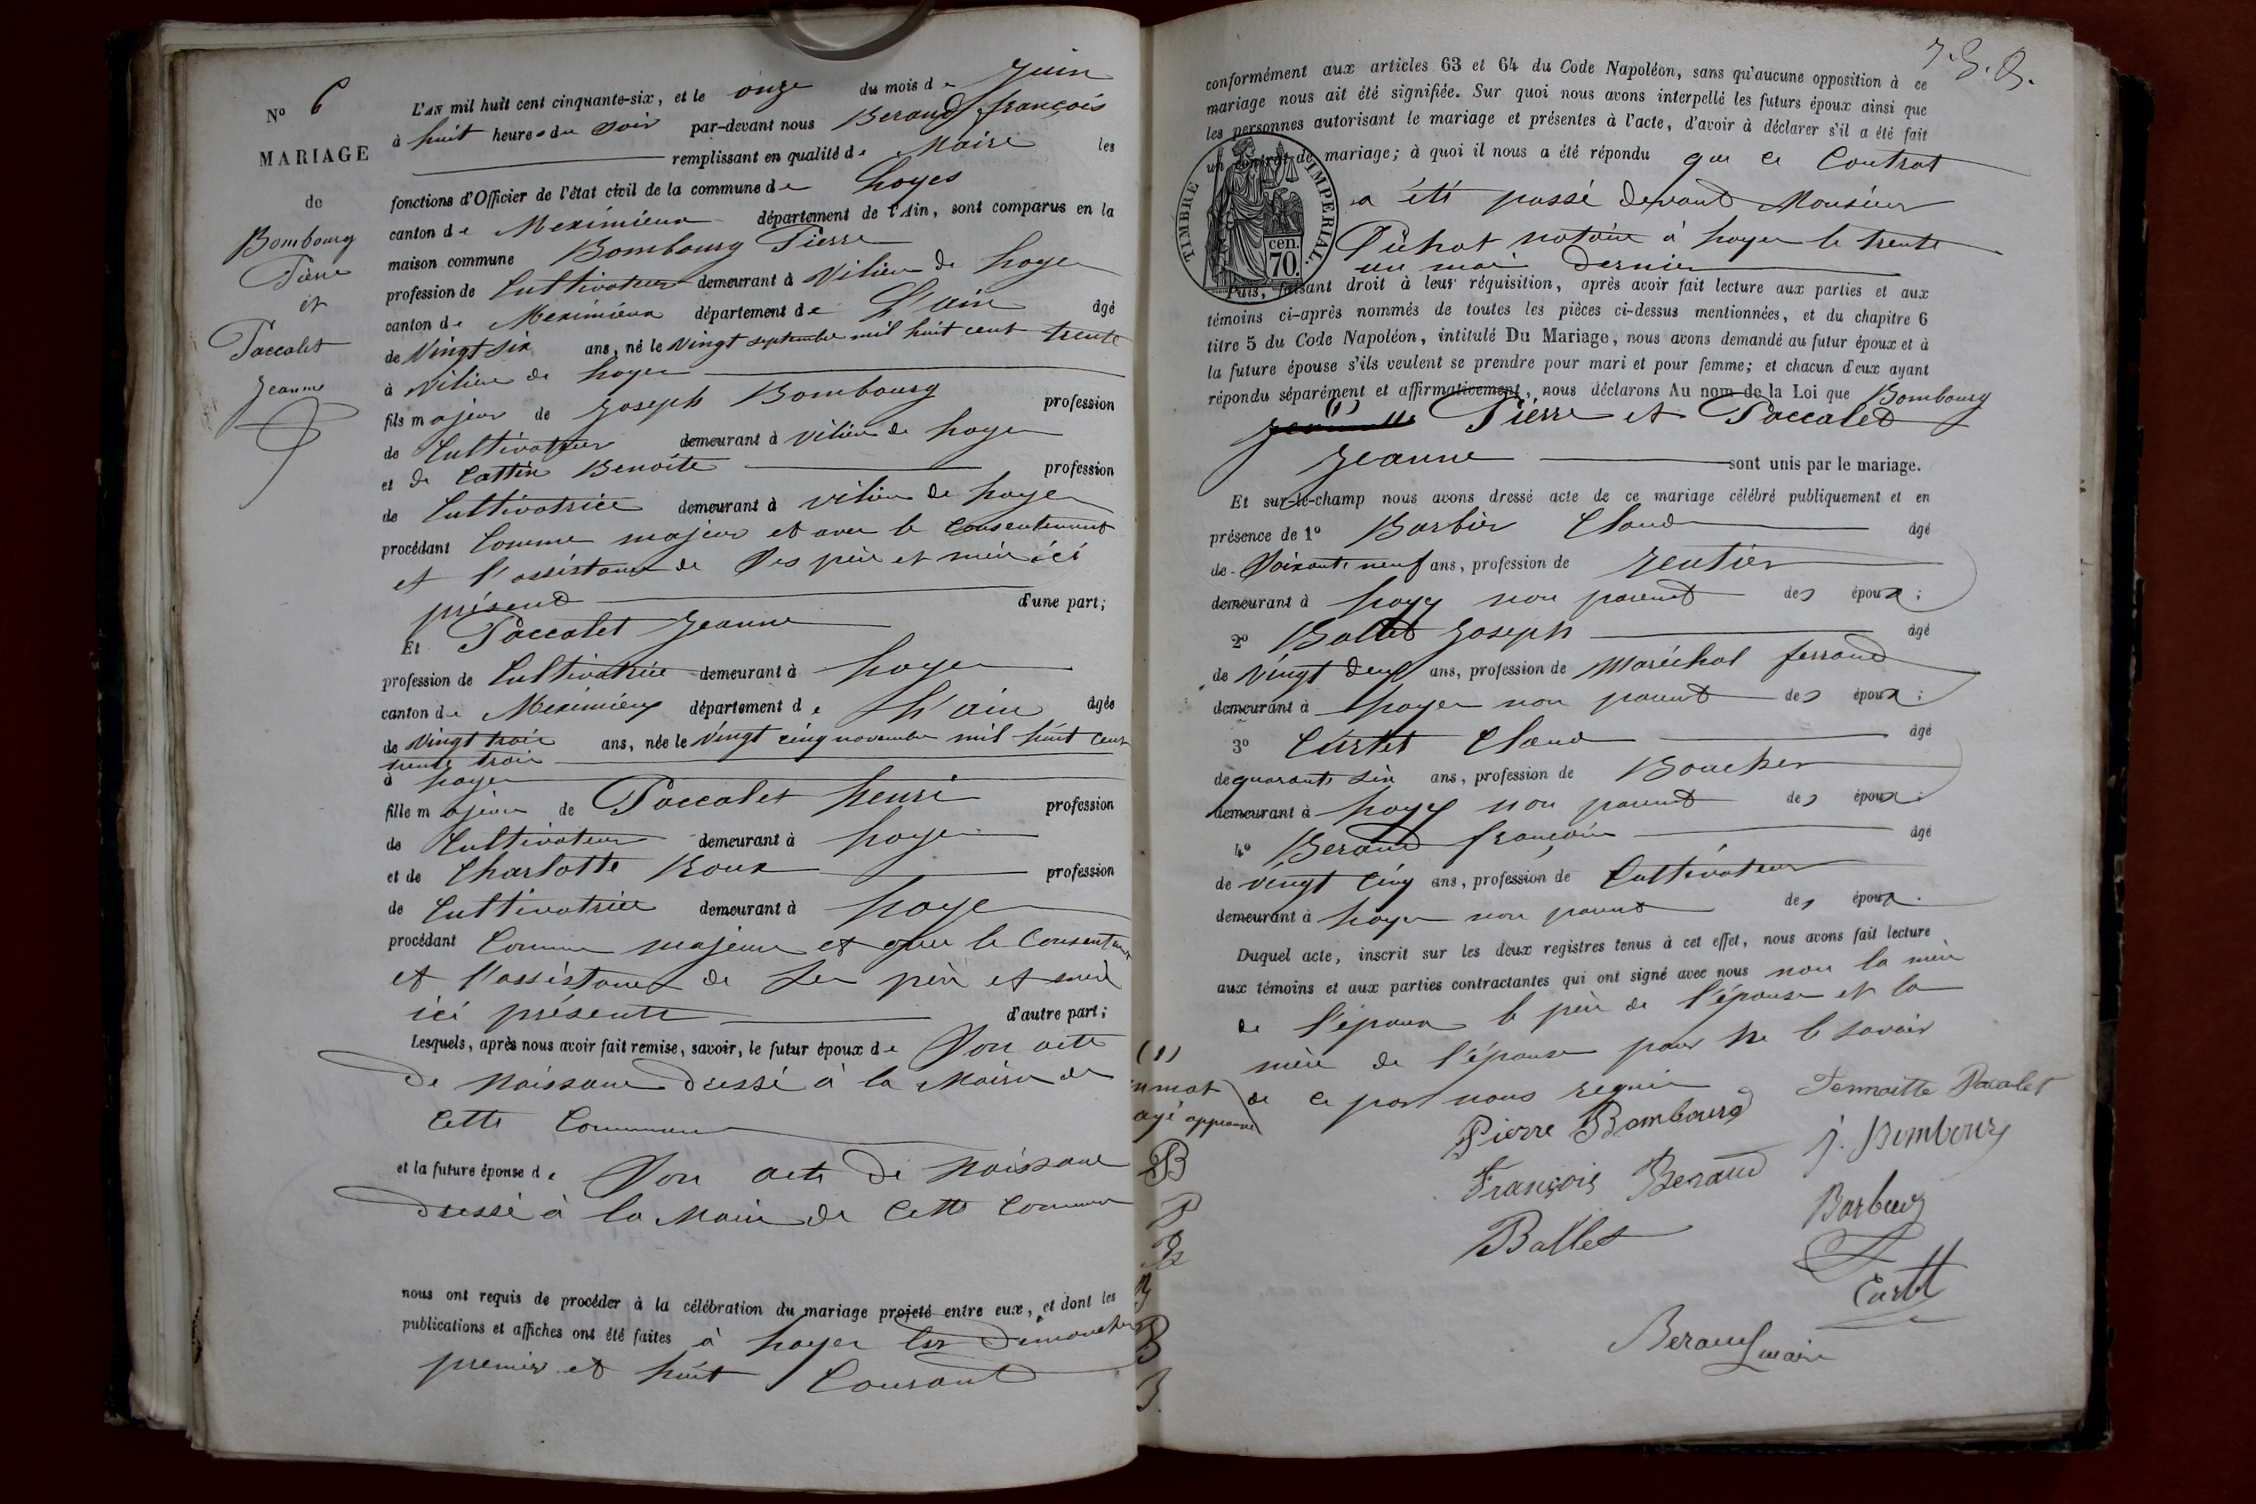 N° 6
MARIAGE
de
Bombourg
Pierre
et
Paccalet
Jeanne
L'AN mil huit cent cinquante-six, et le onze du mois de Juin
à huit heures du soir par-devant nous Beraud françois
remplissant en qualité de Maire les
fonctions d'Officier de l'état civil de la commune de Loyes
canton de Meximieux département de l'Ain, sont comparus en la
maison commune Bombourg Pierre
profession de Cultivateur demeurant à Vilieu de Loyes
canton de Meximieux département de L'ain âgé
de Vingt six ans, né le vingt septembre mil huit cent trente
à Vilieu de Loyes
fils majeur de Joseph Bombourg profession
de Cultivateur demeurant à Vilieu de Loyes
et de Cattin Benoite profession
de Cultivatrice demeurant à Vilieu de Loyes
procédant Comme majeur et avec le Consentement
et l'assistance de ses père et mère ici
présend d'une part;
Et Paccalet Jeanne
profession de Cultivatrice demeurant à Loyes
canton de Meximieux département de L'ain âgée
de Vingt trois ans, née le Vingt cinq novembre mil huit cent
trente trois
à Loyes
fille majeure de Paccalet henri profession
de Cultivateur demeurant à Loyes
et de Charlotte Roux profession
de Cultivatrice demeurant à Loyes
procédant Comme majeure et avec le Consentement
et l'assistance de ses père et mère
ici présents d'autre part;
Lesquels, après nous avoir fait remise, savoir, le futur époux de Son acte
de Naissance dressé à la Mairie de
Cette Commune
et la future épouse de Son acte de Naissance
dressé à la Mairie de Cette Commune
nous ont requis de procéder à la célébration du mariage projeté entre eux, et dont les
publications et affiches ont été faites à Loyes les dimanches
premier et huit Courant
7. S. B.
conformément aux articles 63 et 64 du Code Napoléon, sans qu'aucune opposition à ce
mariage nous ait été signifiée. Sur quoi nous avons interpellé les futurs époux ainsi que
les personnes autorisant le mariage et présentes à l'acte, d'avoir à déclarer s'il a été fait
un contrat de mariage; à quoi il nous a été répondu que ce Contrat
a été passé devant Monsieur
Pichat notaire à Loyes le trente
un mai dernier
TIMBRE IMPERIAL.
cen.
70.
Puis, faisant droit à leur réquisition, après avoir fait lecture aux parties et aux
témoins ci-après nommés de toutes les pièces ci-dessus mentionnées, et du chapitre 6
titre 5 du Code Napoléon, intitulé Du Mariage, nous avons demandé au futur époux et à
la future épouse s'ils veulent se prendre pour mari et pour femme; et chacun d'eux ayant
répondu séparément et affirmativement, nous déclarons Au nom de la Loi que Bombourg
(1) Pierre et Paccaled
Jeanne sont unis par le mariage.
Et sur-le-champ nous avons dressé acte de ce mariage célébré publiquement et en
présence de 1° Barbier Claud âgé
de Soixante neuf ans, profession de rentier
demeurant à Loyes non parent des époux;
2° Ballet Joseph âgé
de Vingt deux ans, profession de Maréchal ferrand
demeurant à Loyes non parent des époux;
3° Curtet Claud âgé
de quarante six ans, profession de Boucher
demeurant à Loyes non parent des époux;
4° Beraud françois âgé
de Vingt cinq ans, profession de Cultivateur
demeurant à Loyes non parent des époux.
Duquel acte, inscrit sur les deux registres tenus à cet effet, nous avons fait lecture
aux témoins et aux parties contractantes qui ont signé avec nous non la mère
de l'époux le père de l'épouse et la
mère de l'épouse pour ne le savoir
de ce par nous requis
(1)
un mot
rayé approuvé
B
P
B
B
B
B.
Pierre Bombourg
Jennoitte Pacalet
François Beraud
J. Bombourg
Ballet
Barbier
Curtet
Beraud maire